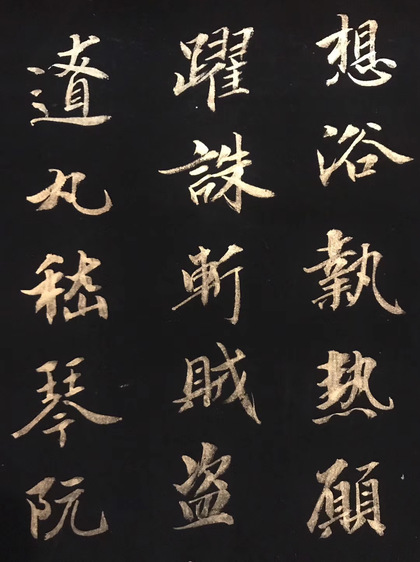 想浴執熱願
躍誅斬賊盗
遼丸嵇琴阮